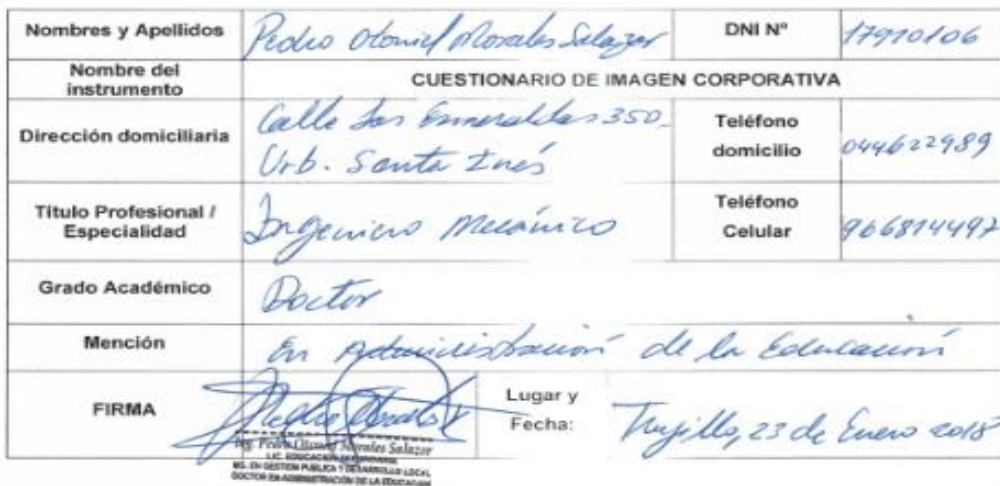 Nombres y Apellidos Pedro Otoniel Morales Salazar DNI N° 17910106
Nombre del instrumento CUESTIONARIO DE IMAGEN CORPORATIVA
Dirección domiciliaria Calle Las Esmeraldas 350_
Urb. Santa Inés
Teléfono domicilio 044622989
Título Profesional / Especialidad Ingeniero Mecánico
Teléfono Celular 966814497
Grado Académico Doctor
Mención En Administración de la Educación
FIRMA
Lugar y Fecha: Trujillo, 23 de Enero 2018
Ing. Pedro Otoniel Morales Salazar
LIC. EDUCACIÓN
MG. EN GESTIÓN PUBLICA Y DESARROLLO LOCAL
DOCTOR EN ADMINISTRACIÓN DE LA EDUCACIÓN